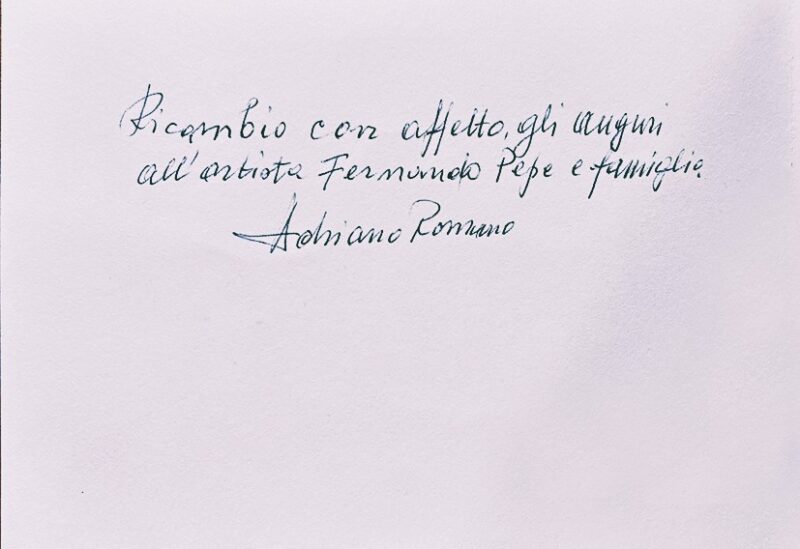 Ricambio con affetto, gli auguri
all'artista Fernando Pepe e famiglia
Adriano Romano